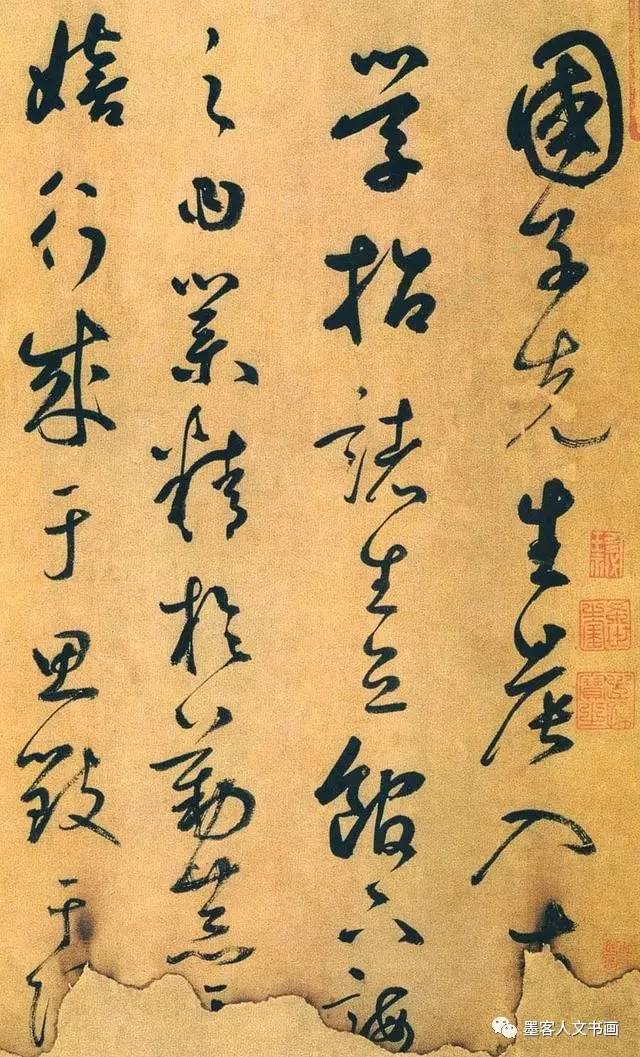 國子先生晨入太
學招諸生立館下誨
之曰業精於勤荒于
嬉行成于思毀于
墨客人文书画